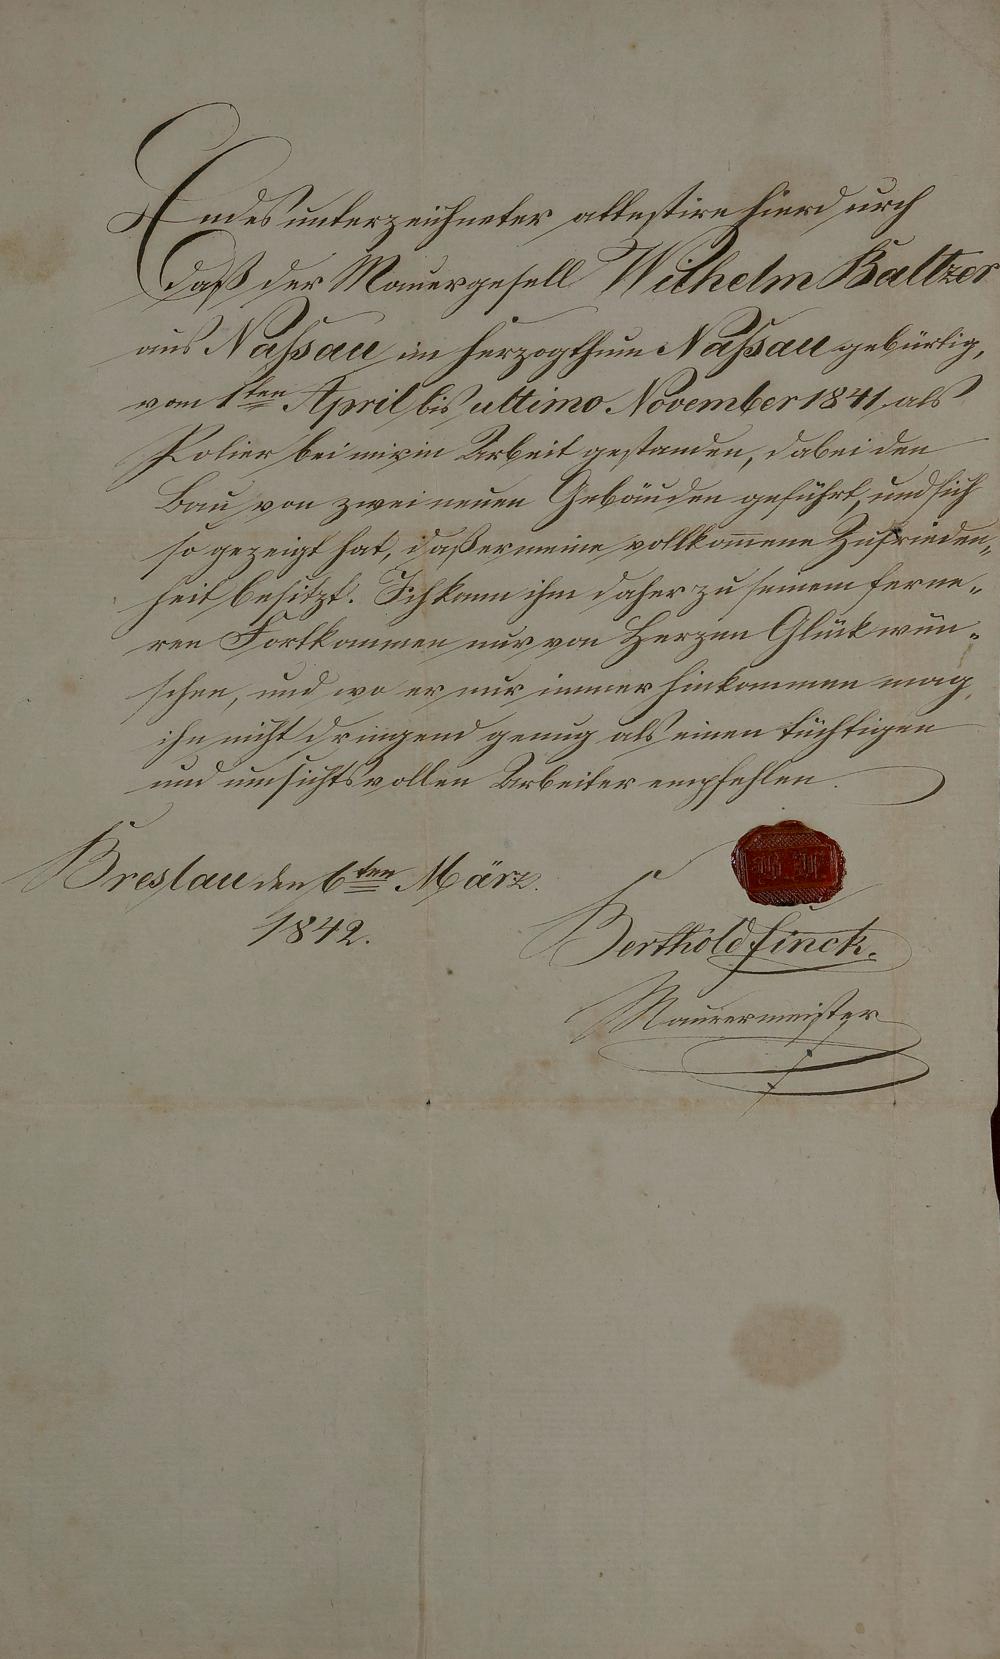 Endesunterzeichneter attestire hierdurch
daß der Mauergesell Wilhelm Baltzer
aus Naßau im Herzogthum Naßau gebürtig,
vom 1ten April bis ultimo November 1841 als
Polier bei mir in Arbeit gestanden, dabei den
Bau von zwei neuen Gebäuden geführt, und sich
so gezeigt hat, daß er meine vollkom̅ene Zufrieden„
heit besitzt. Ich kann ihm daher zu seinem ferne„
ren Fortkommen nur von Herzen Glück wün„
schen, und wo er nur immer hinkommen mag,
ihn nicht dringend genug als einen tüchtigen
und umsichtsvollen Arbeiter empfehlen.
Breslau den 6ten März.
1842.
B. F.
Berthold Finck.
Maurermeister